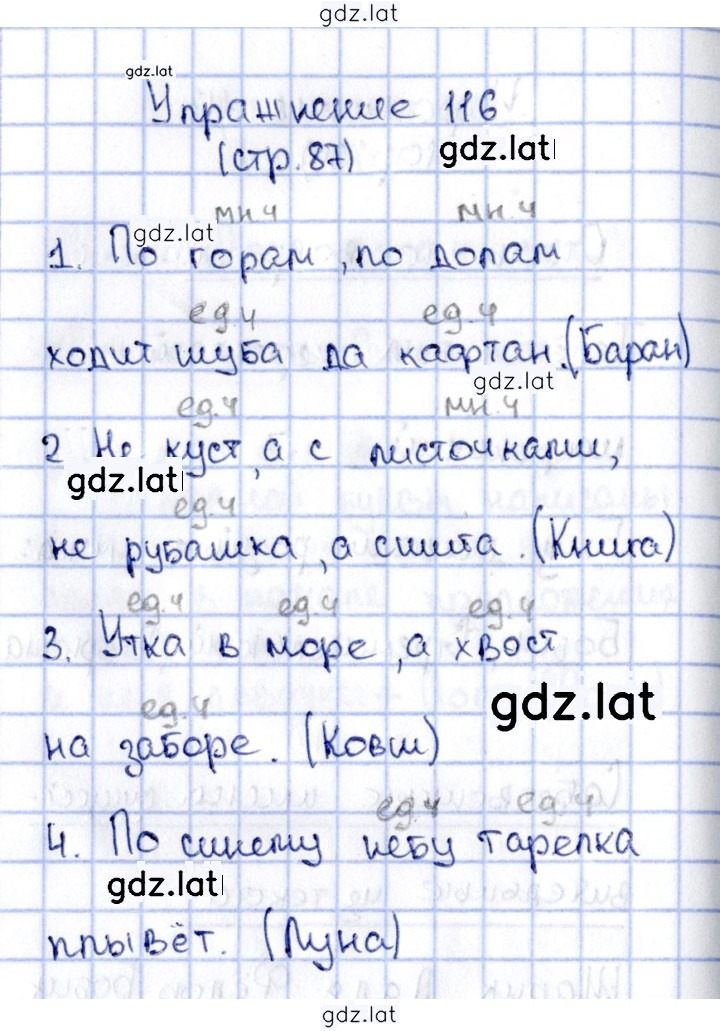 gdz.lat
gdz.lat
Упражнение 116
(стр.87) gdz.lat
мн.ч мн.ч
gdz.lat
1. По горам, по долам
ед.ч ед.ч
ходит шуба да кафтан. (Баран)
gdz.lat
ед.ч мн.ч
2 Не куст, а с листочками,
gdz.lat
ед.ч
не рубашка, а сшита. (Книга)
ед.ч ед.ч ед.ч
3. Утка в море, а хвост
gdz.lat
ед.ч
на заборе. (Ковш)
ед.ч ед.ч
4. По синему небу тарелка
gdz.lat
плывёт. (Луна)
gdz.lat